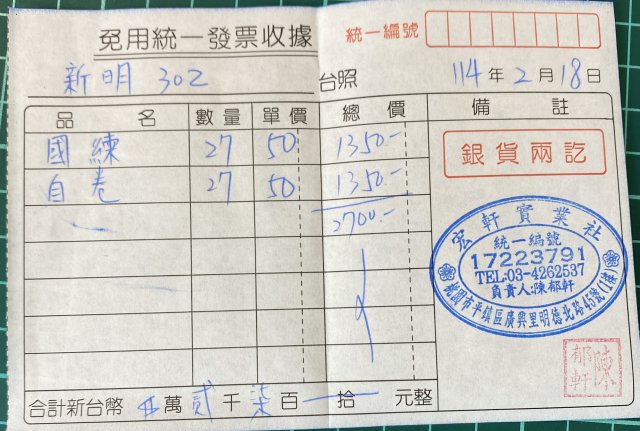 免用統一發票收據
統一編號
新明 302 台照 114年2月18日
品名 數量 單價 總價 備註
國練 27 50 1350.-
自卷 27 50 1350.-
2700.-
銀貨兩訖
宏軒實業社
統一編號
17223791
TEL:03-4262537
負責人:陳郁軒
桃園市平鎮區廣興里明德北路45號(1樓)
陳郁軒
合計新台幣 萬貳仟柒百 拾 元整